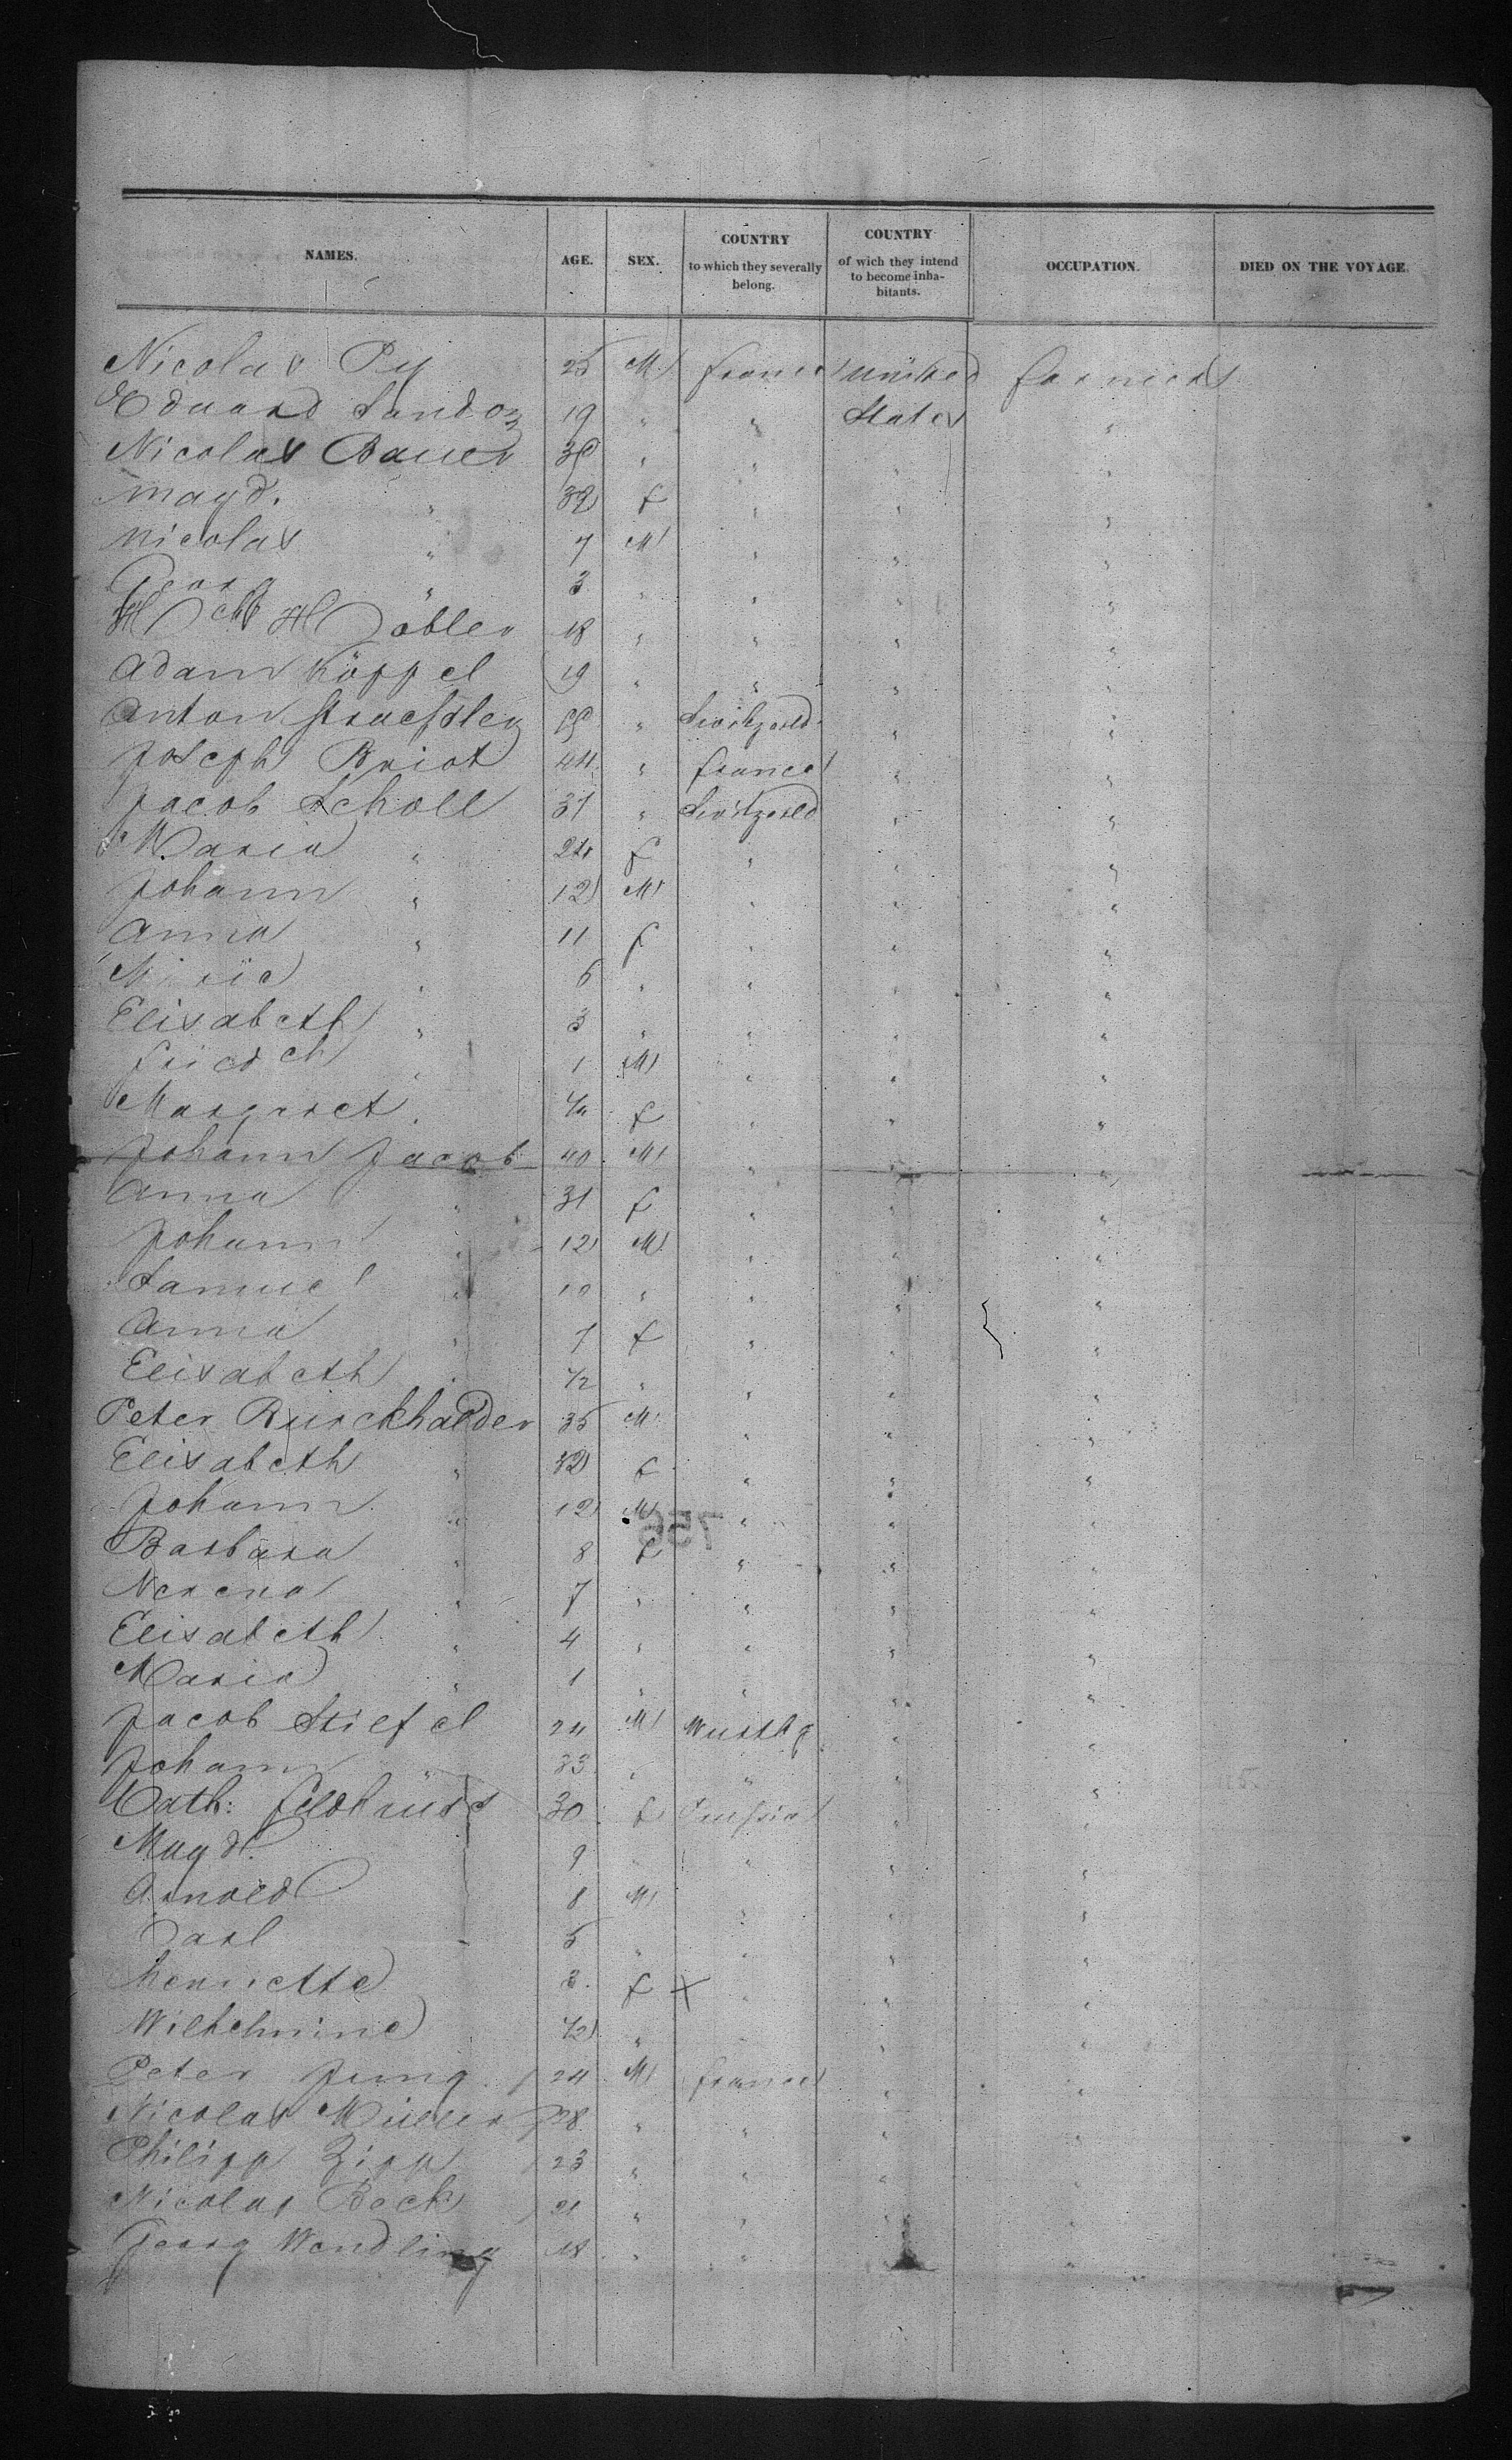 NAMES. AGE. SEX. COUNTRY to which they severally belong. COUNTRY of wich they intend to become inhabitants. OCCUPATION. DIED ON THE VOYAGE.
Nicolas Py 25 M france united farmers
Eduard Sandoz 19 " " States "
Nicolas Bauer " " " "
Magd. " 32 f " " "
Nicolas " 7 M " " "
Georg " 3 " " " "
18 " " " "
Adam Köppel 19 " " " "
Anton " Switzerld. " "
Joseph Briot 44 " france " "
Jacob Scholl 37 " Switzerld " "
Maria " 24 f " " "
Johann " 12 M " " "
Anna " 11 f " " "
Marie " 6 " " " "
Elisabeth " 3 " " " "
friedch " 1 M " " "
Margaret " f " " "
Johann Jacob 40 M " " "
Anna " 31 f " " "
Johann " 12 M " " "
Samuel " 10 " " " "
Anna " 7 f " " "
Elisabeth " 1/2 " " " "
Peter Burckhalder 35 M " " "
Elisabeth " 32 f " " "
Johann " 12 M " " "
756
Barbara " 8 f " " "
Verena " 7 " " " "
Elisabeth " 4 " " " "
Maria " 1 " " " "
Jacob Stiefel 24 M Wurtbg " "
Johann 33 " " " "
Cath: 30 f Prussia " "
Magd. 9 " " " "
Arnold 8 M " " "
Carl 5 " " " "
Henriette 3 f X " " "
Wilhelmine 1/2 " " " "
Peter Jung 24 M france " "
Nicolas Müller 28 " " " "
Philipp Zipp 23 " " " "
Nicolas Beck 21 " " " "
Georg Wendling 18 " " "